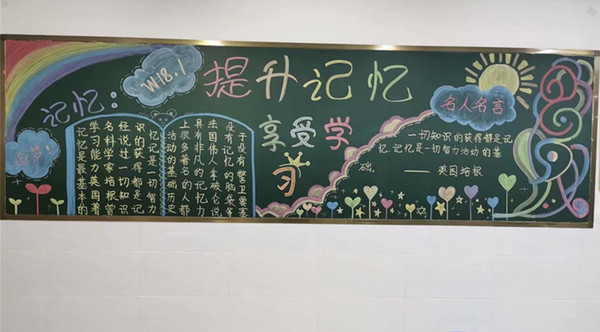 W18.1
提升记忆
享受学
习
记忆:
追梦!
记忆是最基本的
学习能力英国著
名科学家培根曾
经说过一切知识
识的获得都是记
忆记是一切智力
活动的基础历史
上很多著名的人都
具有非凡的记忆力
法国伟人拿破仑说
没有记忆的脑袋等
于没有警卫要塞
名人名言
一切知识的获得都是记
忆.记忆是一切智力活动的基
础.
——英国培根